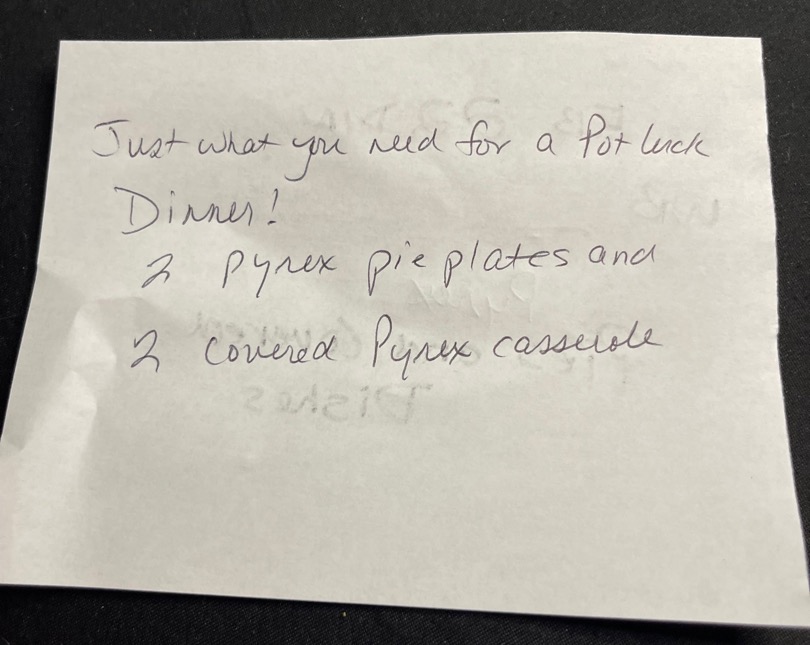 Just what you need for a Pot luck
Dinner!
2 pyrex pie plates and
2 covered Pyrex casserole
Dishes